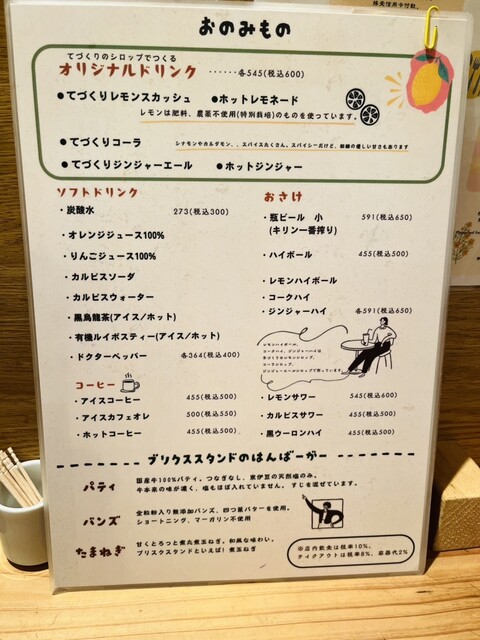 おのみもの
てづくりのシロップでつくる
オリジナルドリンク ……各545(税込600)
●てづくりレモンスカッシュ ●ホットレモネード
レモンは肥料、農薬不使用(特別栽培)のものを使っています。
●てづくりコーラ シナモンやカルダモン、、スパイスたくさん。スパイシーだけど、和糖の優しい甘さもあります
●てづくりジンジャーエール ●ホットジンジャー
ソフトドリンク
・炭酸水 273(税込300)
・オレンジジュース100%
・りんごジュース100%
・カルピスソーダ
・カルピスウォーター
・黒烏龍茶(アイス/ホット)
・有機ルイボスティー(アイス/ホット)
・ドクターペッパー 各364(税込400)
コーヒー
・アイスコーヒー 455(税込500)
・アイスカフェオレ 500(税込550)
・ホットコーヒー 455(税込500)
おさけ
・瓶ビール 小 591(税込650)
(キリン一番搾り)
・ハイボール 455(税込500)
・レモンハイボール
・コークハイ
・ジンジャーハイ 各591(税込650)
レモンハイボール、
コークハイ、ジンジャーハイは
手づくりのレモンシロップ、
コーラシロップ、
ジンジャーエールシロップで割っています。
・レモンサワー 545(税込600)
・カルピスサワー 455(税込500)
・黒ウーロンハイ 455(税込500)
ブリクススタンドのはんばーがー
パティ
国産牛100%パティ。つなぎなし、東伊豆の天然塩のみ。
牛本来の味が濃く、塩もほぼ入れていません。すじを混ぜています。
バンズ
全粒粉入り無添加バンズ、四つ葉バターを使用。
ショートニング、マーガリン不使用
たまねぎ
甘くとろっと煮た煮玉ねぎ。和風な味わい。
ブリスクスタンドといえば！煮玉ねぎ
※店内飲食は税率10%、
テイクアウトは税率8%、容器代2%